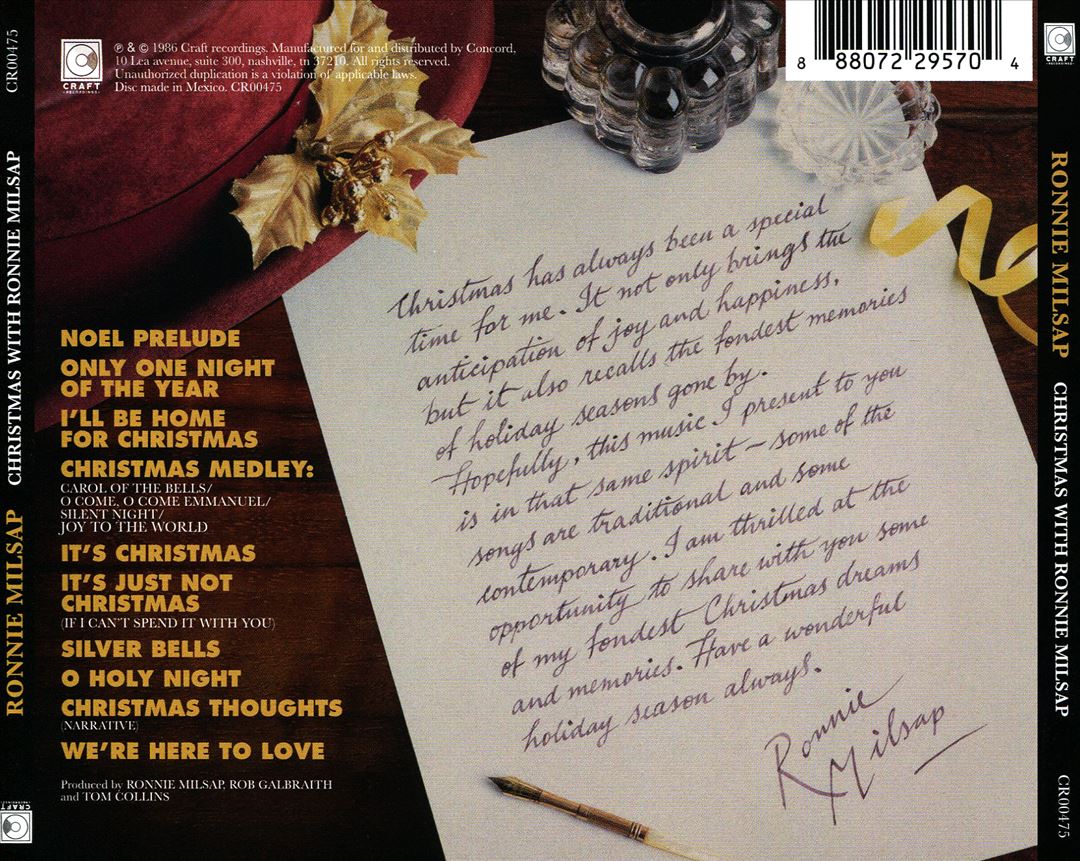 CR00475
CHRISTMAS WITH RONNIE MILSAP
RONNIE MILSAP
CRAFT
RECORDINGS
℗ & © 1986 Craft recordings. Manufactured for and distributed by Concord,
10 Lea avenue, suite 300, nashville, tn 37210. All rights reserved.
Unauthorized duplication is a violation of applicable laws.
Disc made in Mexico. CR00475
8 88072 29570 4
NOEL PRELUDE
ONLY ONE NIGHT
OF THE YEAR
I'LL BE HOME
FOR CHRISTMAS
CHRISTMAS MEDLEY:
CAROL OF THE BELLS/
O COME, O COME EMMANUEL/
SILENT NIGHT/
JOY TO THE WORLD
IT'S CHRISTMAS
IT'S JUST NOT
CHRISTMAS
(IF I CAN'T SPEND IT WITH YOU)
SILVER BELLS
O HOLY NIGHT
CHRISTMAS THOUGHTS
(NARRATIVE)
WE'RE HERE TO LOVE
Produced by RONNIE MILSAP, ROB GALBRAITH
and TOM COLLINS
Christmas has always been a special
time for me. It not only brings the
anticipation of joy and happiness,
but it also recalls the fondest memories
of holiday seasons gone by.
Hopefully, this music I present to you
is in that same spirit – some of the
songs are traditional and some
contemporary. I am thrilled at the
opportunity to share with you some
of my fondest Christmas dreams
and memories. Have a wonderful
holiday season always.
Ronnie
Milsap
CRAFT
RECORDINGS
CRAFT
RECORDINGS
RONNIE MILSAP
CHRISTMAS WITH RONNIE MILSAP
CR00475